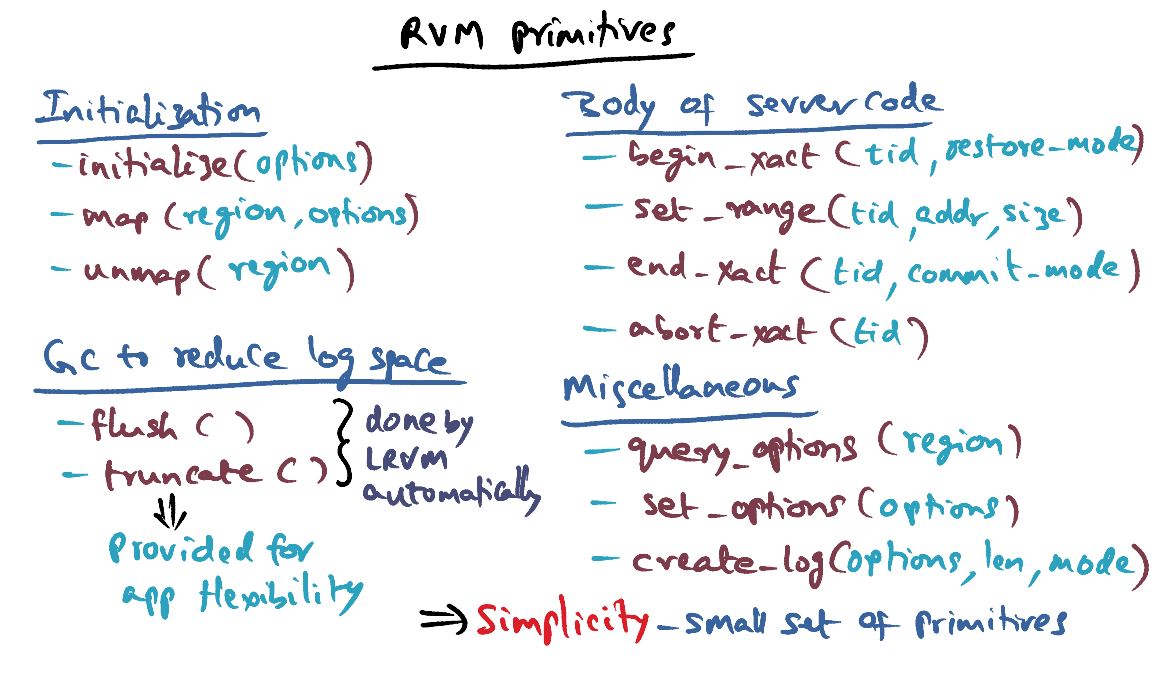 RVM primitives
Initialization
- initialize (options)
- map (region, options)
- unmap (region)
GC to reduce log space
- flush ( )
- truncate ( )
done by
LRVM
automatically
Provided for
app flexibility
Body of server code
- begin_xact (tid, restore-mode)
- set_range (tid, addr, size)
- end_xact (tid, commit-mode)
- abort_xact (tid)
Miscellaneous
- query_options (region)
- set_options (options)
- create_log (options, len, mode)
⇒ Simplicity - small set of primitives